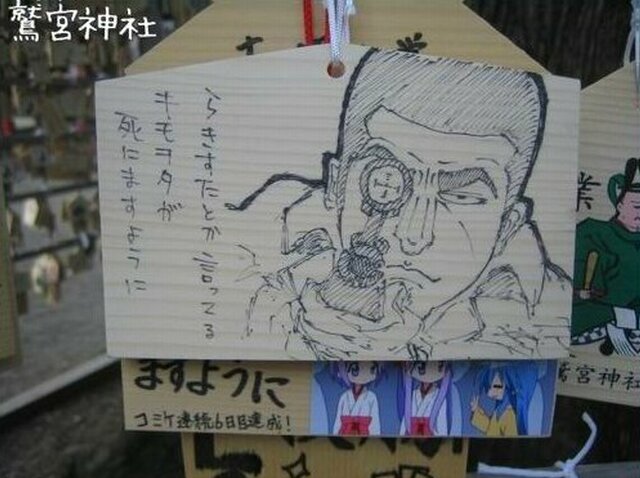 鷲宮神社
らきすたとか言ってる
キモヲタが
死にますように
ますように
コミケ連続6日目達成!
業
鷲宮神社